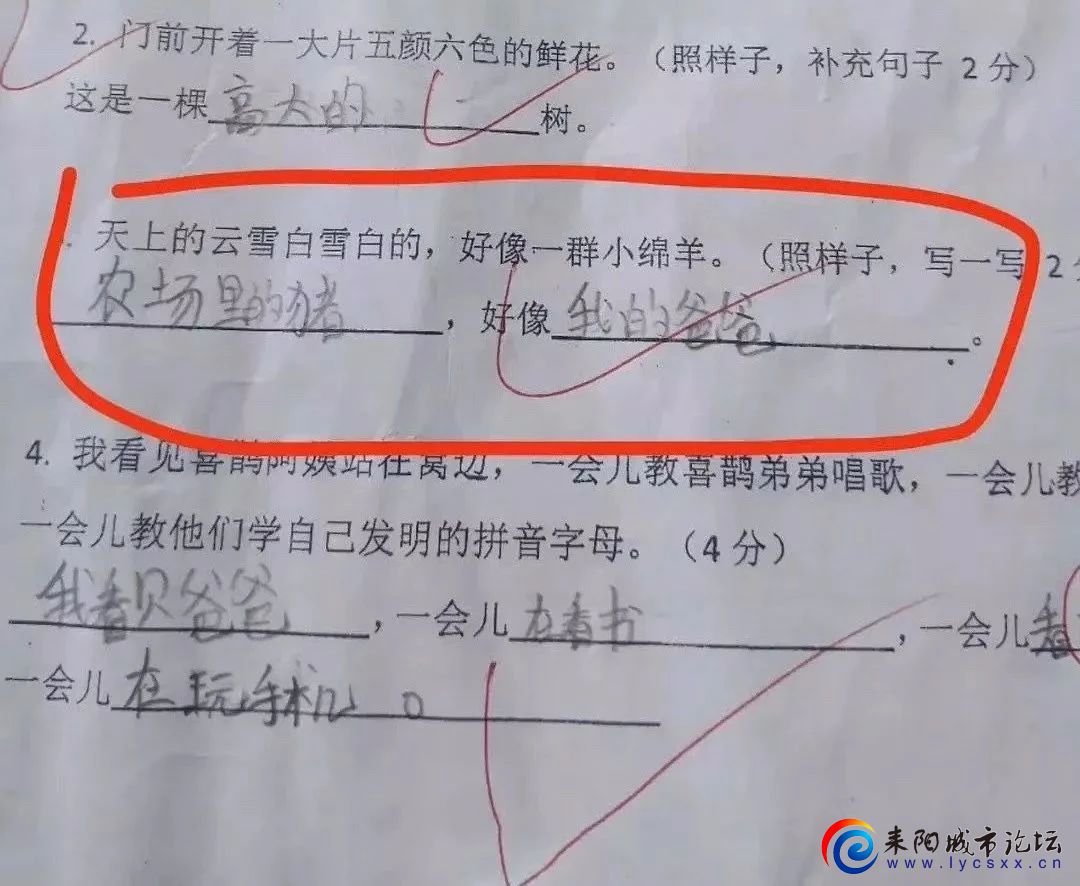 2. 门前开着一大片五颜六色的鲜花。（照样子，补充句子 2 分）
这是一棵高大的树。
. 天上的云雪白雪白的，好像一群小绵羊。（照样子，写一写 2
农场里的猪，好像我的爸爸。
4. 我看见喜鹊阿姨站在窝边，一会儿教喜鹊弟弟唱歌，一会儿教
一会儿教他们学自己发明的拼音字母。（4 分）
我看见爸爸，一会儿在看书，一会儿看
一会儿在玩手机。
耒阳城市论坛
www.lycsxx.cn